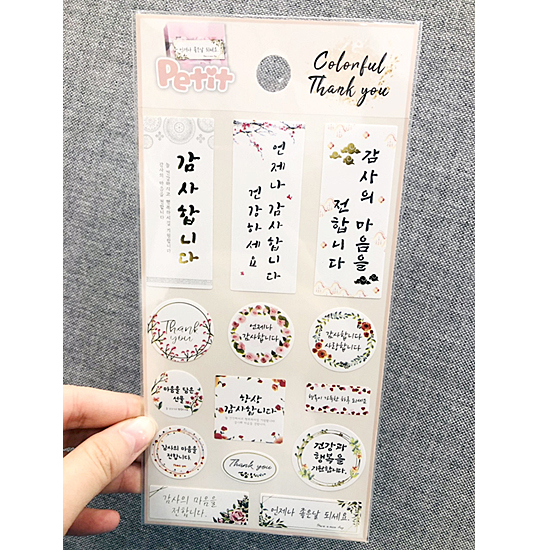 Petit
Colorful
Thank you
감사합니다
언제나 감사합니다
건강하세요
감사의 마음을
전합니다
Thank
you
언제나
감사합니다
감사합니다
사랑합니다
마음을 담은
선물
항상
감사합니다
행복이 가득한 하루 되세요
감사의 마음을
전합니다.
Thank you
건강과
행복을
기원합니다
감사의 마음을
전합니다.
언제나 좋은날 되세요.